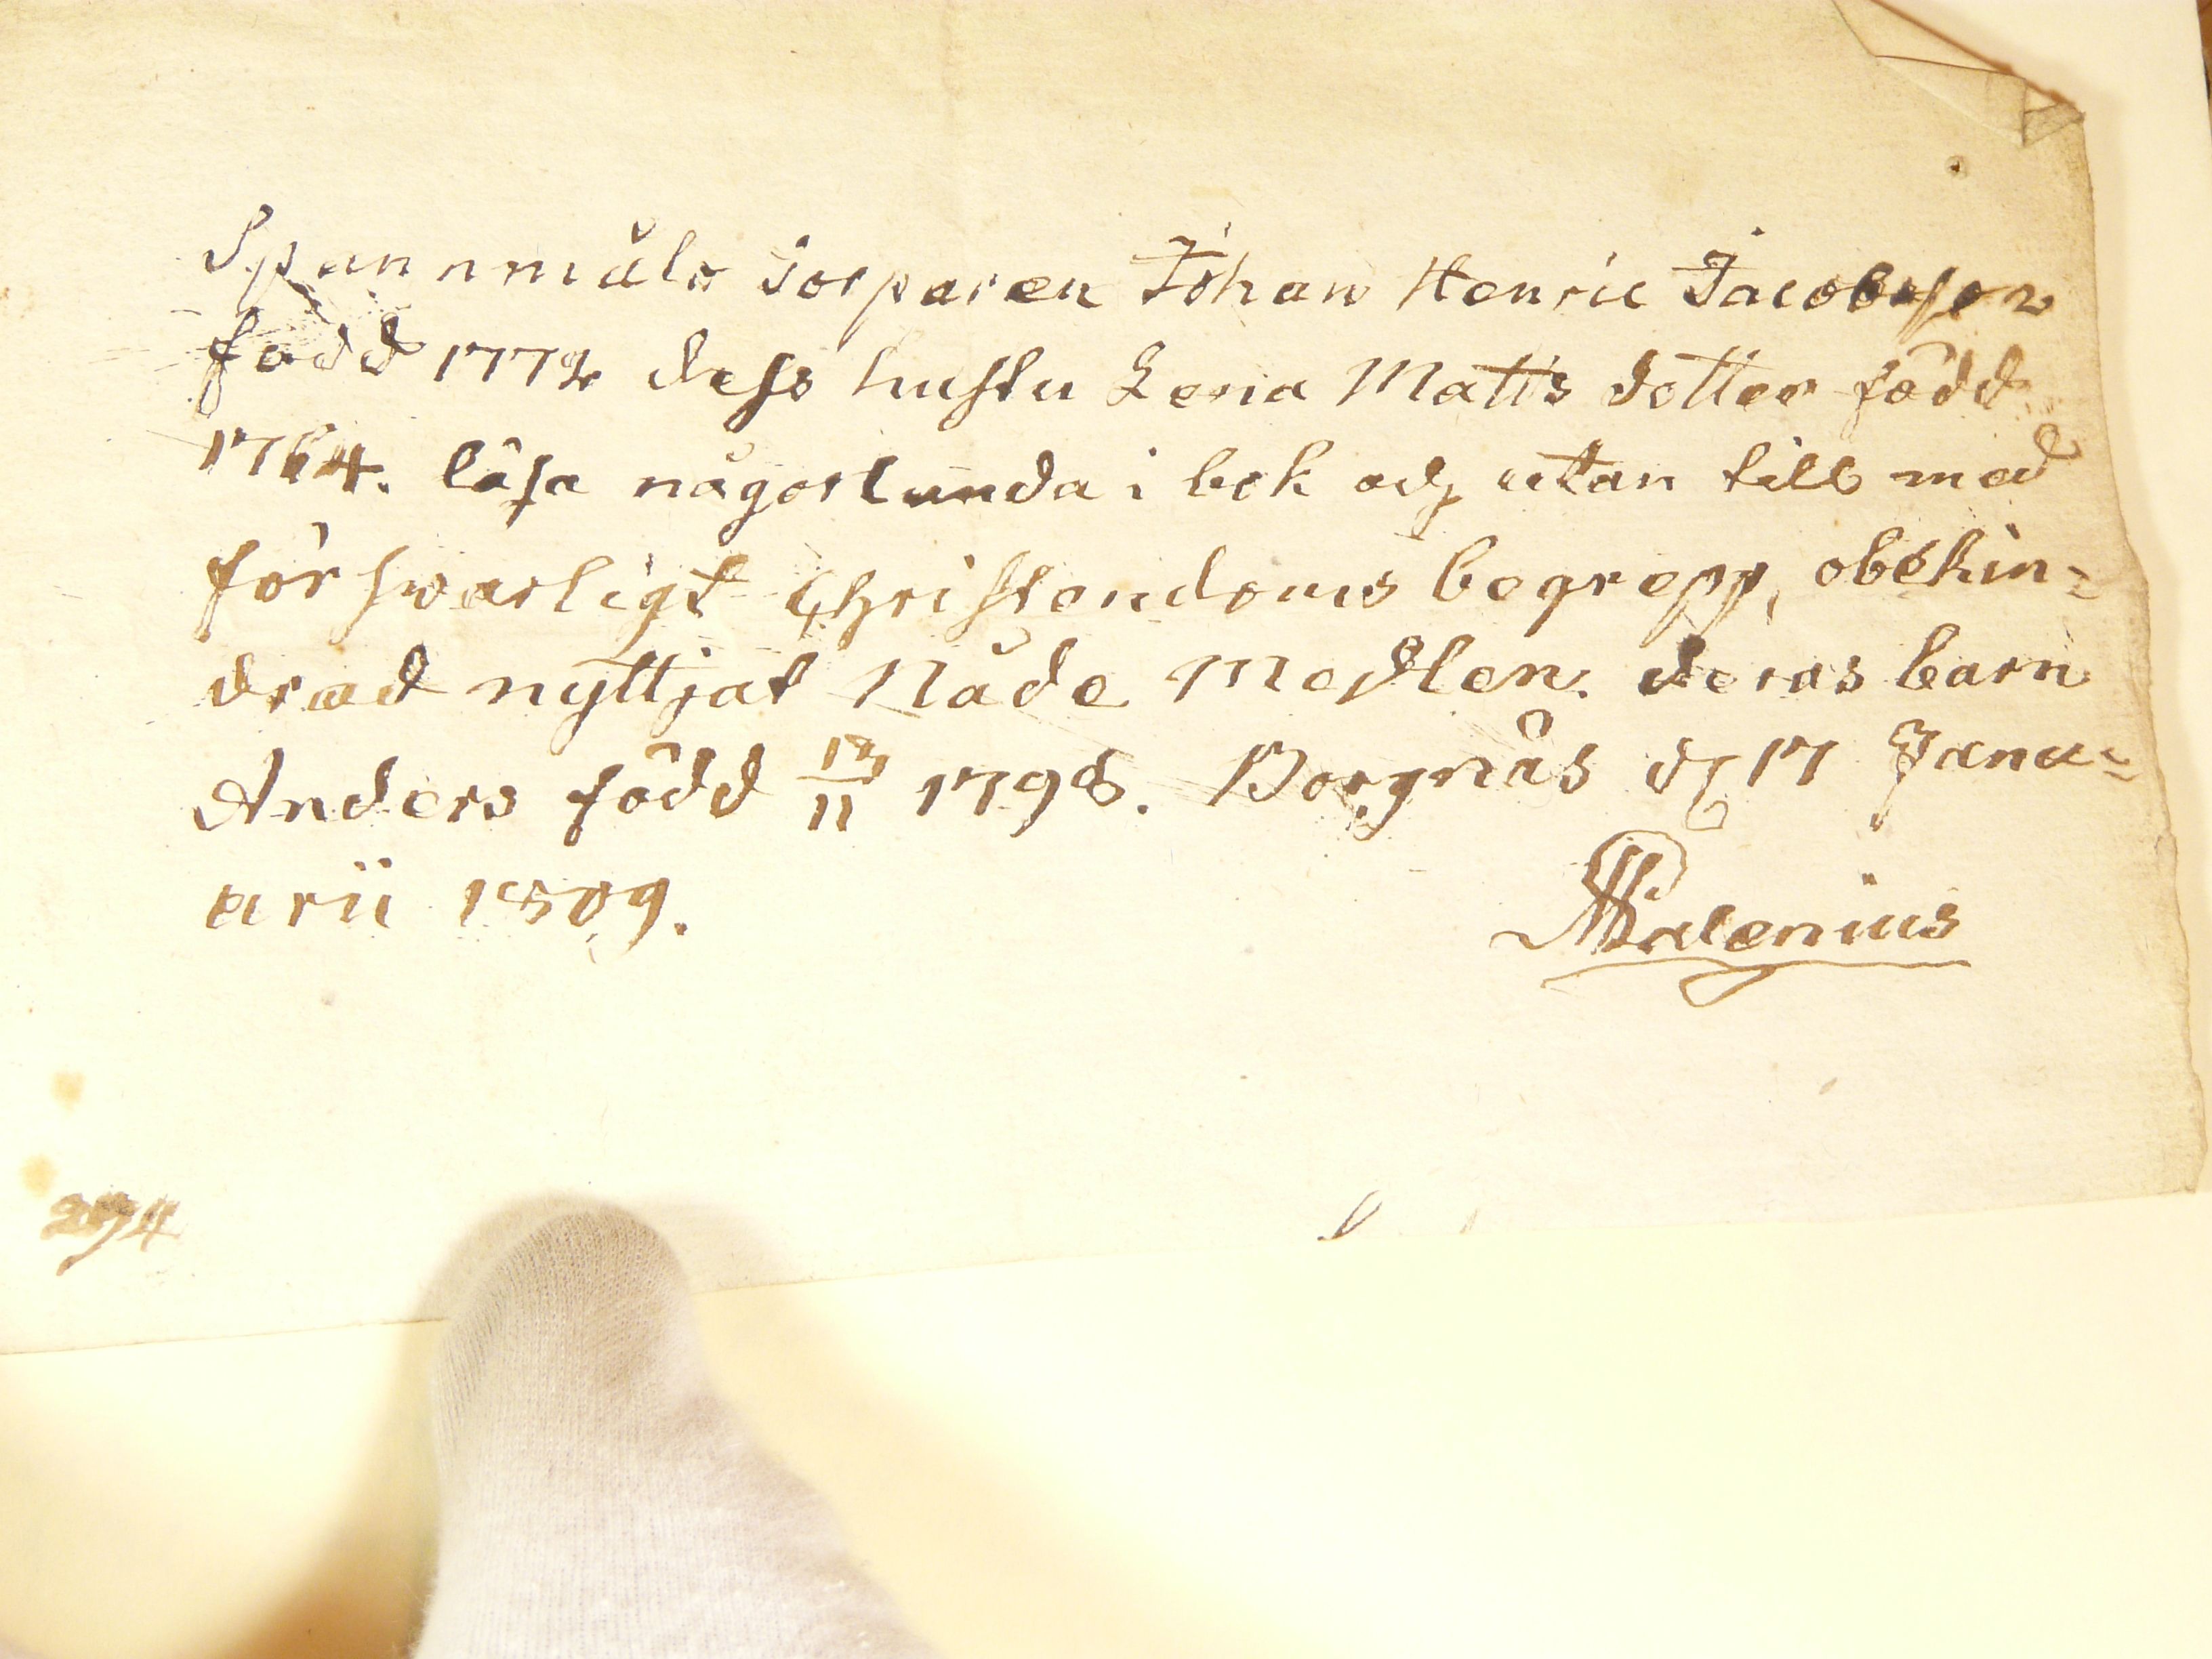 Spannmåls Torparen Johan Henric Jacobsson
född 1772 dess hustru Lena Matts dotter född
1764. läsa någorlunda i bok och utan till med
försvarligt Christendoms begrepp, obehin=
drad nyttjat Nåde Medlen. deras barn
Anders född 17/11 1798. Borgnäs d 17 Janu=
arii 1809.
Walenius
294